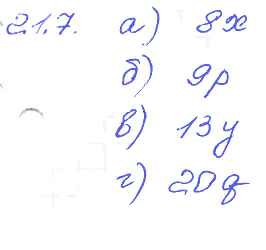 21.7. а) 8x
б) 9p
в) 13y
г) 20q